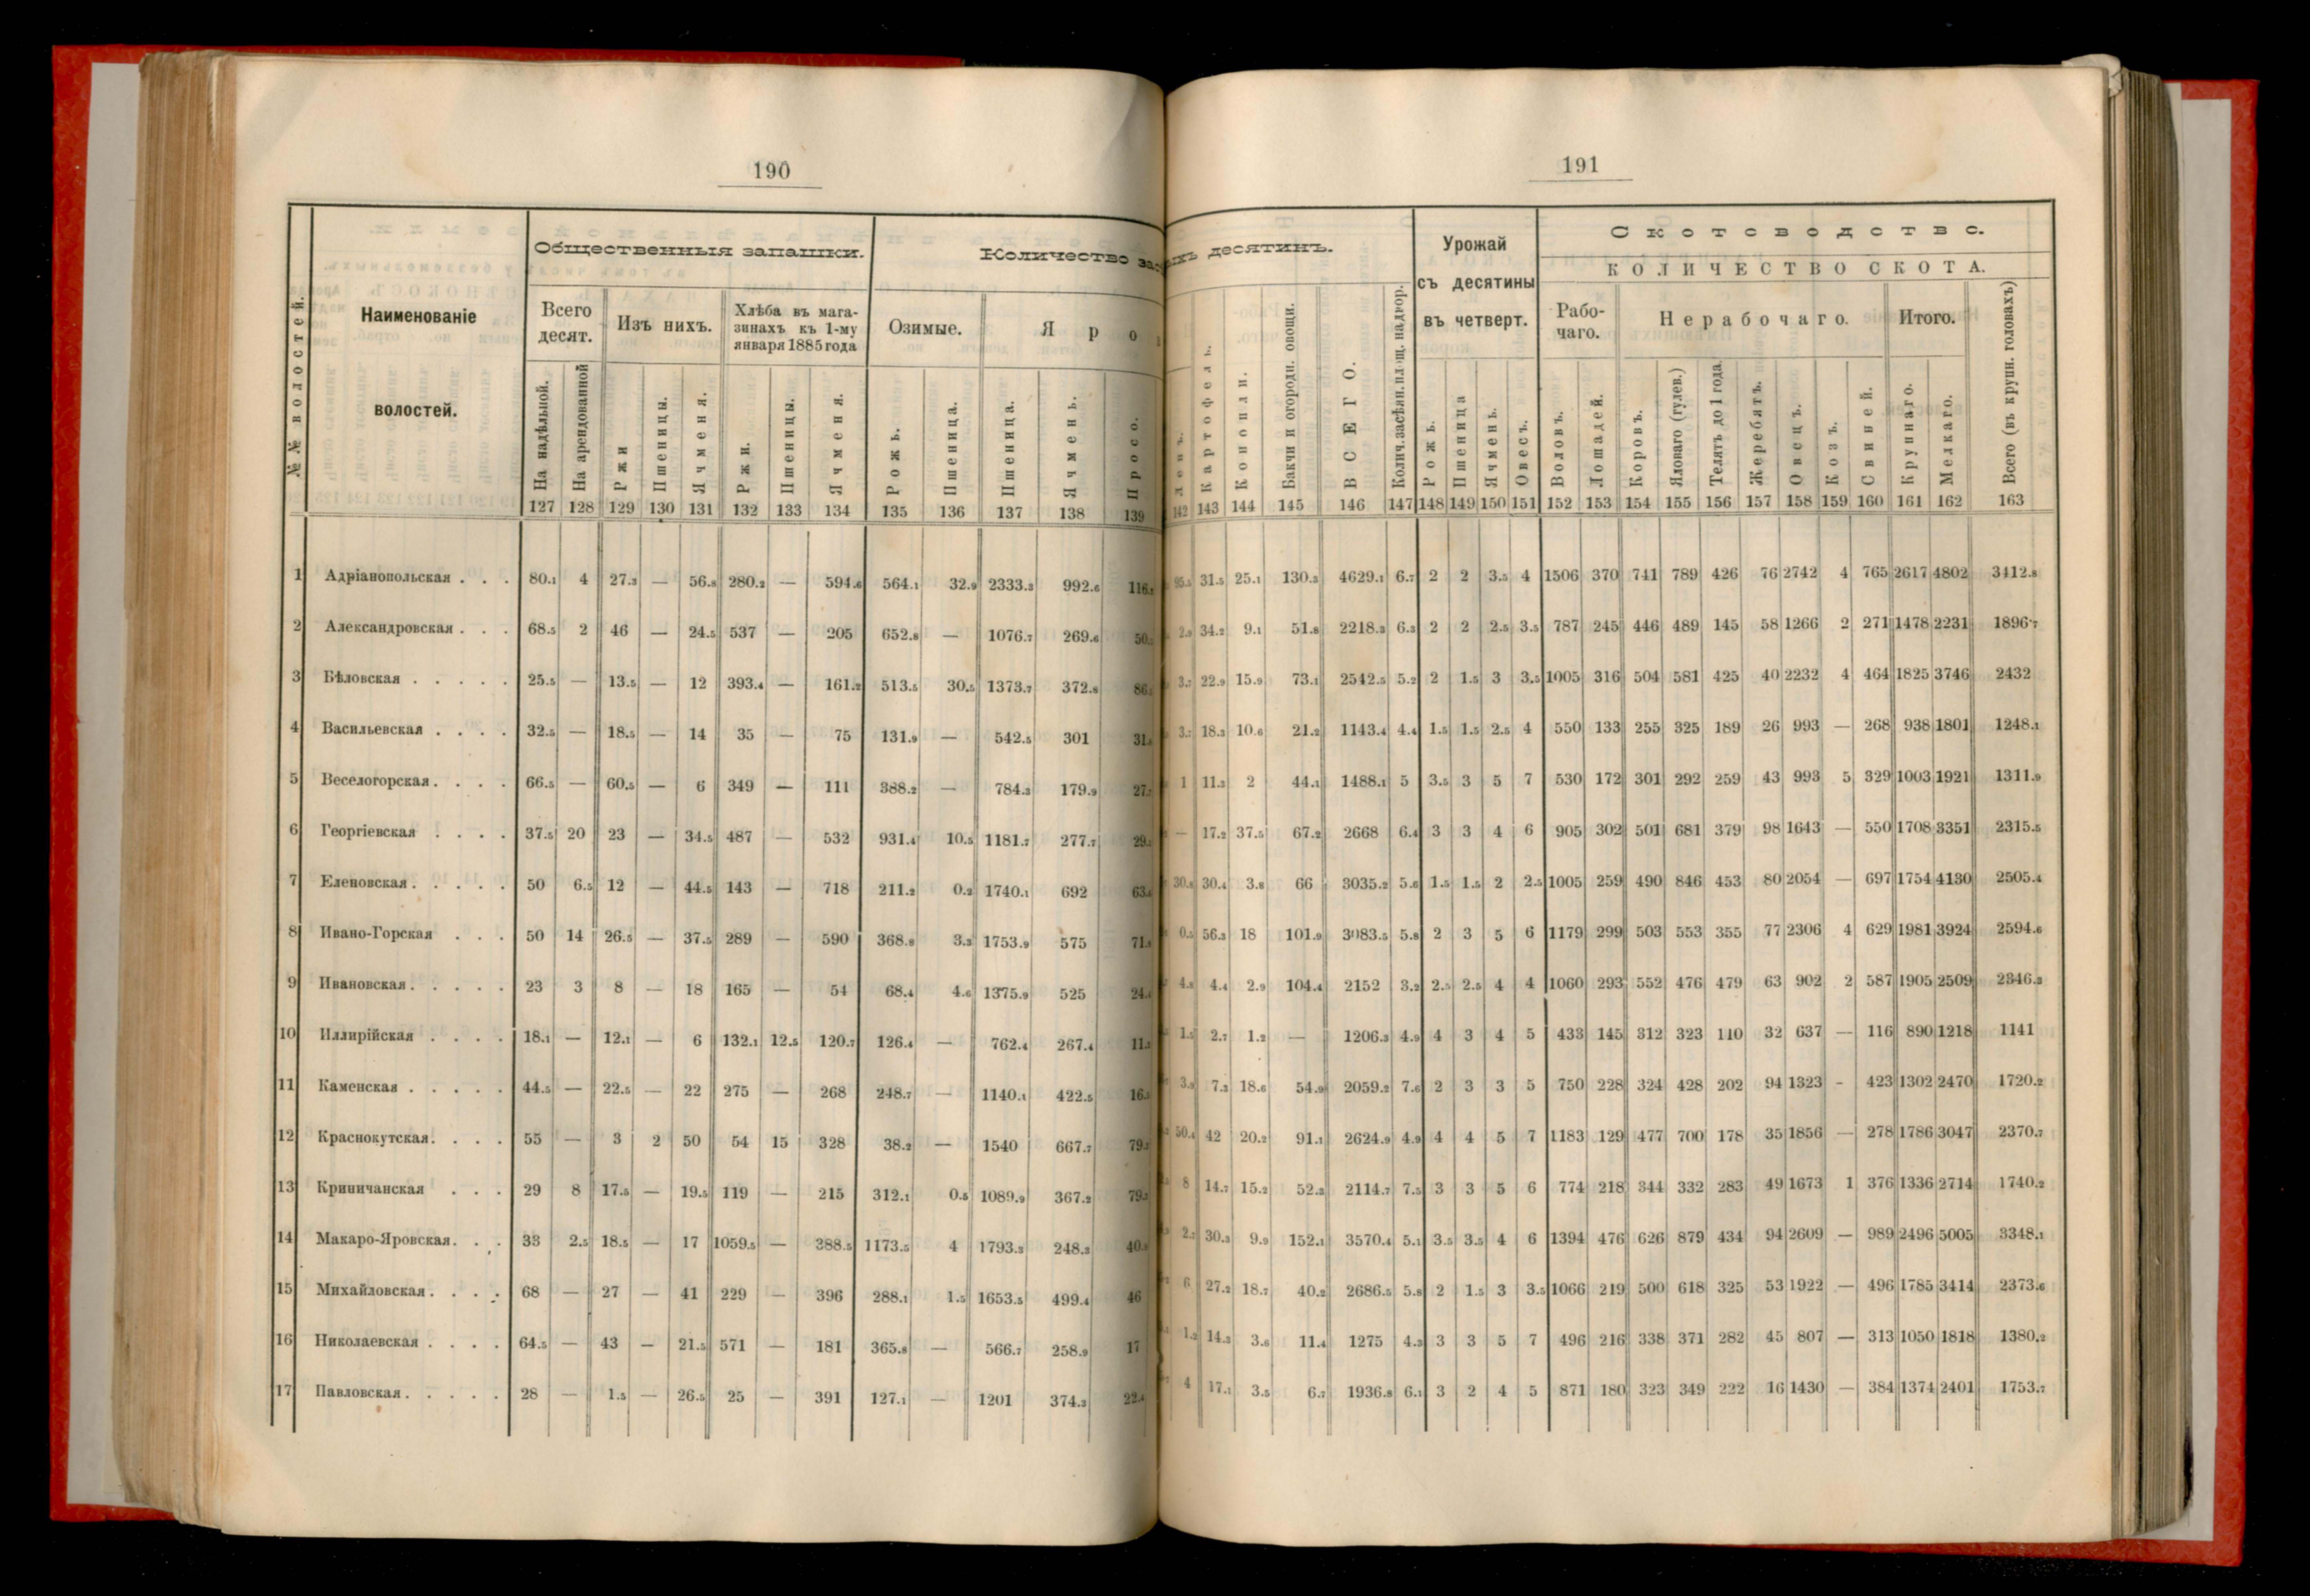 190
Общественныя запашки.
Количество
№№ волостей.
Наименованіе
волостей.
Всего
десят.
Изъ нихъ.
Хлѣба въ мага-
зинахъ къ 1-му
января 1885 года
Озимые.
Я р о
На надѣльной.
На арендованной
Ржи
Пшеницы.
Ячменя.
Ржи.
Пшеницы.
Ячменя.
Рожь.
Пшеница.
Пшеница.
Ячмень.
Просо.
127 128 129 130 131 132 133 134 135 136 137 138 139
1 Адріанопольская . . . 80.1 4 27.3 — 56.8 280.2 — 594.6 564.1 32.9 2333.3 992.6
2 Александровская . . . 68.5 2 46 — 24.5 537 — 205 652.8 — 1076.7 269.6
3 Бѣловская . . . . . 25.5 — 13.5 — 12 393.4 — 161.2 513.5 30.5 1373.7 372.8
4 Васильевская . . . . 32.5 — 18.5 — 14 35 — 75 131.9 — 542.5 301
5 Веселогорская . . . . 66.5 — 60.5 — 6 349 — 111 388.2 — 784.3 179.9
6 Георгіевская . . . . 37.5 20 23 — 34.5 487 — 532 931.4 10.5 1181.7 277.7
7 Еленовская . . . . . 50 6.5 12 — 44.5 143 — 718 211.2 0.2 1740.1 692
8 Ивано-Горская . . . 50 14 26.5 — 37.5 289 — 590 368.8 3.3 1753.9 575
9 Ивановская . . . . . 23 3 8 — 18 165 — 54 68.4 4.6 1375.9 525
10 Иллирійская . . . . 18.1 — 12.1 — 6 132.1 12.5 120.7 126.4 — 762.4 267.4
11 Каменская . . . . . 44.5 — 22.5 — 22 275 — 268 248.7 — 1140.1 422.5
12 Краснокутская . . . . 55 — 3 2 50 54 15 328 38.2 — 1540 667.7
13 Криничанская . . . 29 8 17.5 — 19.5 119 — 215 312.1 0.5 1089.9 367.2
14 Макаро-Яровская . . . 33 2.5 18.5 — 17 1059.5 — 388.5 1173.5 4 1793.3 248.3
15 Михайловская . . . . 68 — 27 — 41 229 — 396 288.1 1.5 1653.5 499.4 46
16 Николаевская . . . . 64.5 — 43 — 21.5 571 — 181 365.8 — 566.7 258.9 17
17 Павловская . . . . . 28 — 1.5 — 26.5 25 — 391 127.1 — 1201 374.3
191
десятинъ.
Урожай
съ десятины
въ четверт.
Скотоводство.
КОЛИЧЕСТВО СКОТА.
Рабо-
чаго.
Нерабочаго.
Итого.
Картофель.
Конопли.
Бакчи и огородн. овощи.
ВСЕГО.
Колич. засѣян. площ. на двор.
Рожь.
Пшеница
Ячмень.
Овесъ.
Воловъ.
Лошадей.
Коровъ.
Яловаго (гулев.)
Телятъ до 1 года.
Жеребятъ.
Овецъ.
Козъ.
Свиней.
Крупнаго.
Мелкаго.
Всего (въ крупн. головахъ)
142 143 144 145 146 147 148 149 150 151 152 153 154 155 156 157 158 159 160 161 162 163
95.5 31.5 25.1 130.3 4629.1 6.7 2 2 3.5 4 1506 370 741 789 426 76 2742 4 765 2617 4802 3412.8
2.9 34.2 9.1 51.8 2218.3 6.3 2 2 2.5 3.5 787 245 446 489 145 58 1266 2 271 1478 2231 1896.7
3.7 22.9 15.9 73.1 2542.5 5.2 2 1.5 3 3.5 1005 316 504 581 425 40 2232 4 464 1825 3746 2432
3.7 18.3 10.6 21.2 1143.4 4.4 1.5 1.5 2.5 4 550 133 255 325 189 26 993 — 268 938 1801 1248.1
1 11.3 2 44.1 1488.1 5 3.5 3 5 7 530 172 301 292 259 43 993 5 329 1003 1921 1311.9
— 17.2 37.5 67.2 2668 6.4 3 3 4 6 905 302 501 681 379 98 1643 — 550 1708 3351 2315.5
30.8 30.4 3.8 66 3035.2 5.6 1.5 1.5 2 2.5 1005 259 490 846 453 80 2054 — 697 1754 4130 2505.4
0.5 56.3 18 101.9 3083.5 5.8 2 3 5 6 1179 299 503 553 355 77 2306 4 629 1981 3924 2594.6
4.8 4.4 2.9 104.4 2152 3.2 2.5 2.5 4 4 1060 293 552 476 479 63 902 2 587 1905 2509 2346.3
1.5 2.7 1.2 — 1206.3 4.9 4 3 4 5 433 145 312 323 110 32 637 — 116 890 1218 1141
3.9 7.3 18.6 54.9 2059.2 7.6 2 3 3 5 750 228 324 428 202 94 1323 - 423 1302 2470 1720.2
50.4 42 20.2 91.1 2624.9 4.9 4 4 5 7 1183 129 477 700 178 35 1856 — 278 1786 3047 2370.7
8 14.7 15.2 52.3 2114.7 7.5 3 3 5 6 774 218 344 332 283 49 1673 1 376 1336 2714 1740.2
30.3 9.9 152.1 3570.4 5.1 3.5 3.5 4 6 1394 476 626 879 434 94 2609 — 989 2496 5005 3348.1
6 27.2 18.7 40.2 2686.5 5.8 2 1.5 3 3.5 1066 219 500 618 325 53 1922 — 496 1785 3414 2373.6
1.2 14.3 3.6 11.4 1275 4.3 3 3 5 7 496 216 338 371 282 45 807 — 313 1050 1818 1380.2
4 17.1 3.5 6.7 1936.8 6.1 3 2 4 5 871 180 323 349 222 16 1430 — 384 1374 2401 1753.7